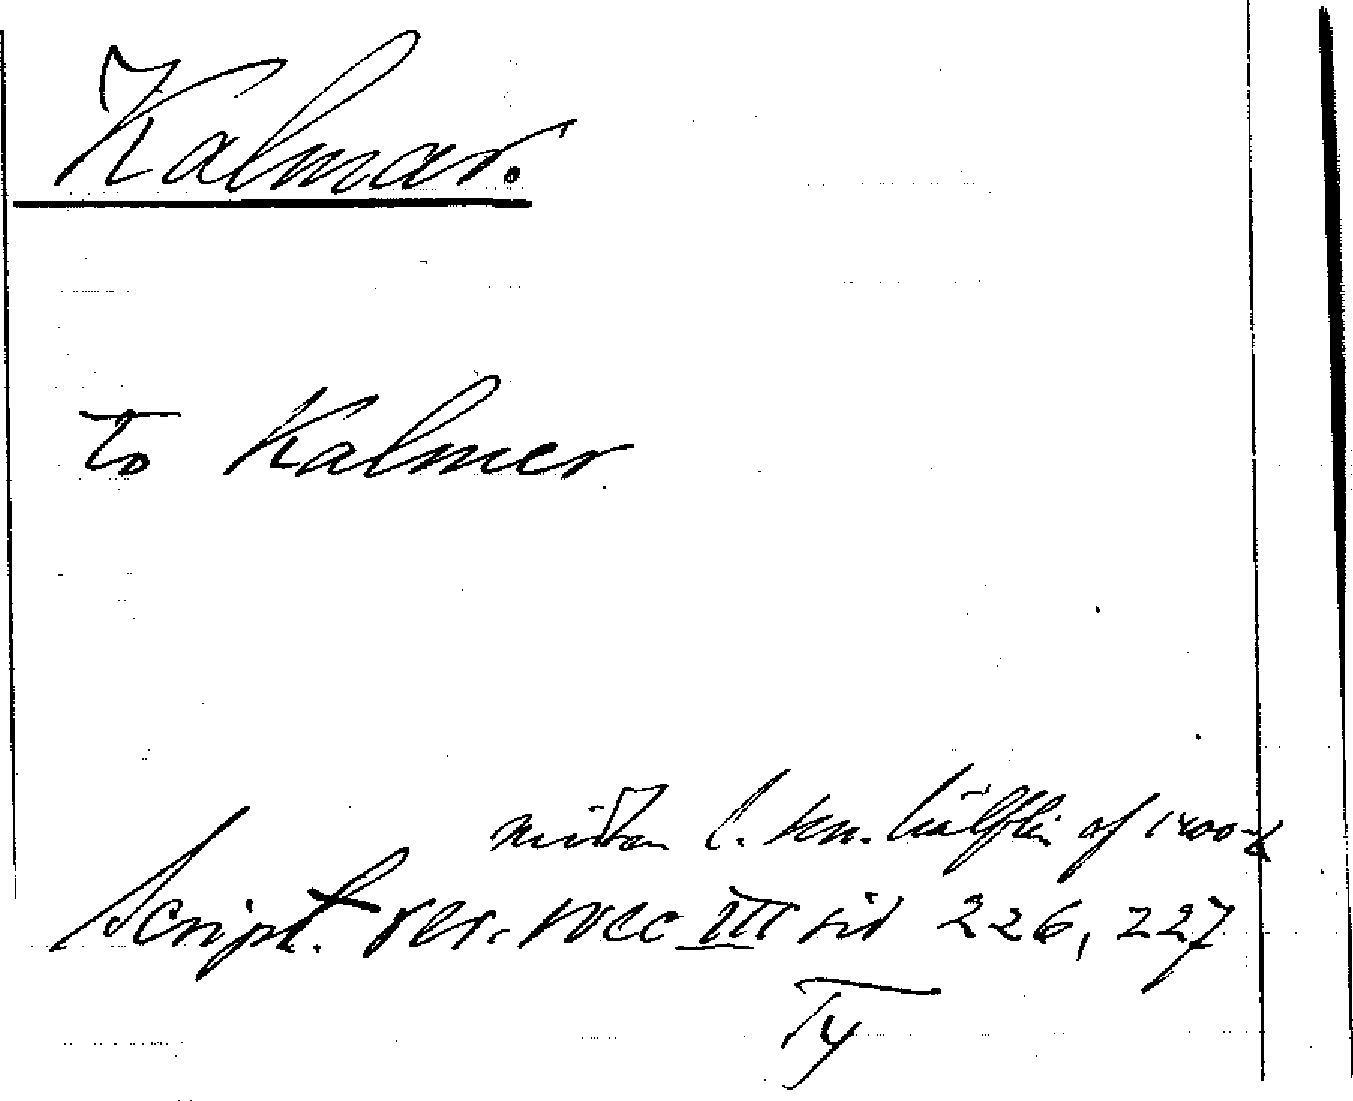 Kalmar.
to Kalmer
mitten l. sen. hälften af 1400-t
Script. rer. svec III sid 226, 227
Ty